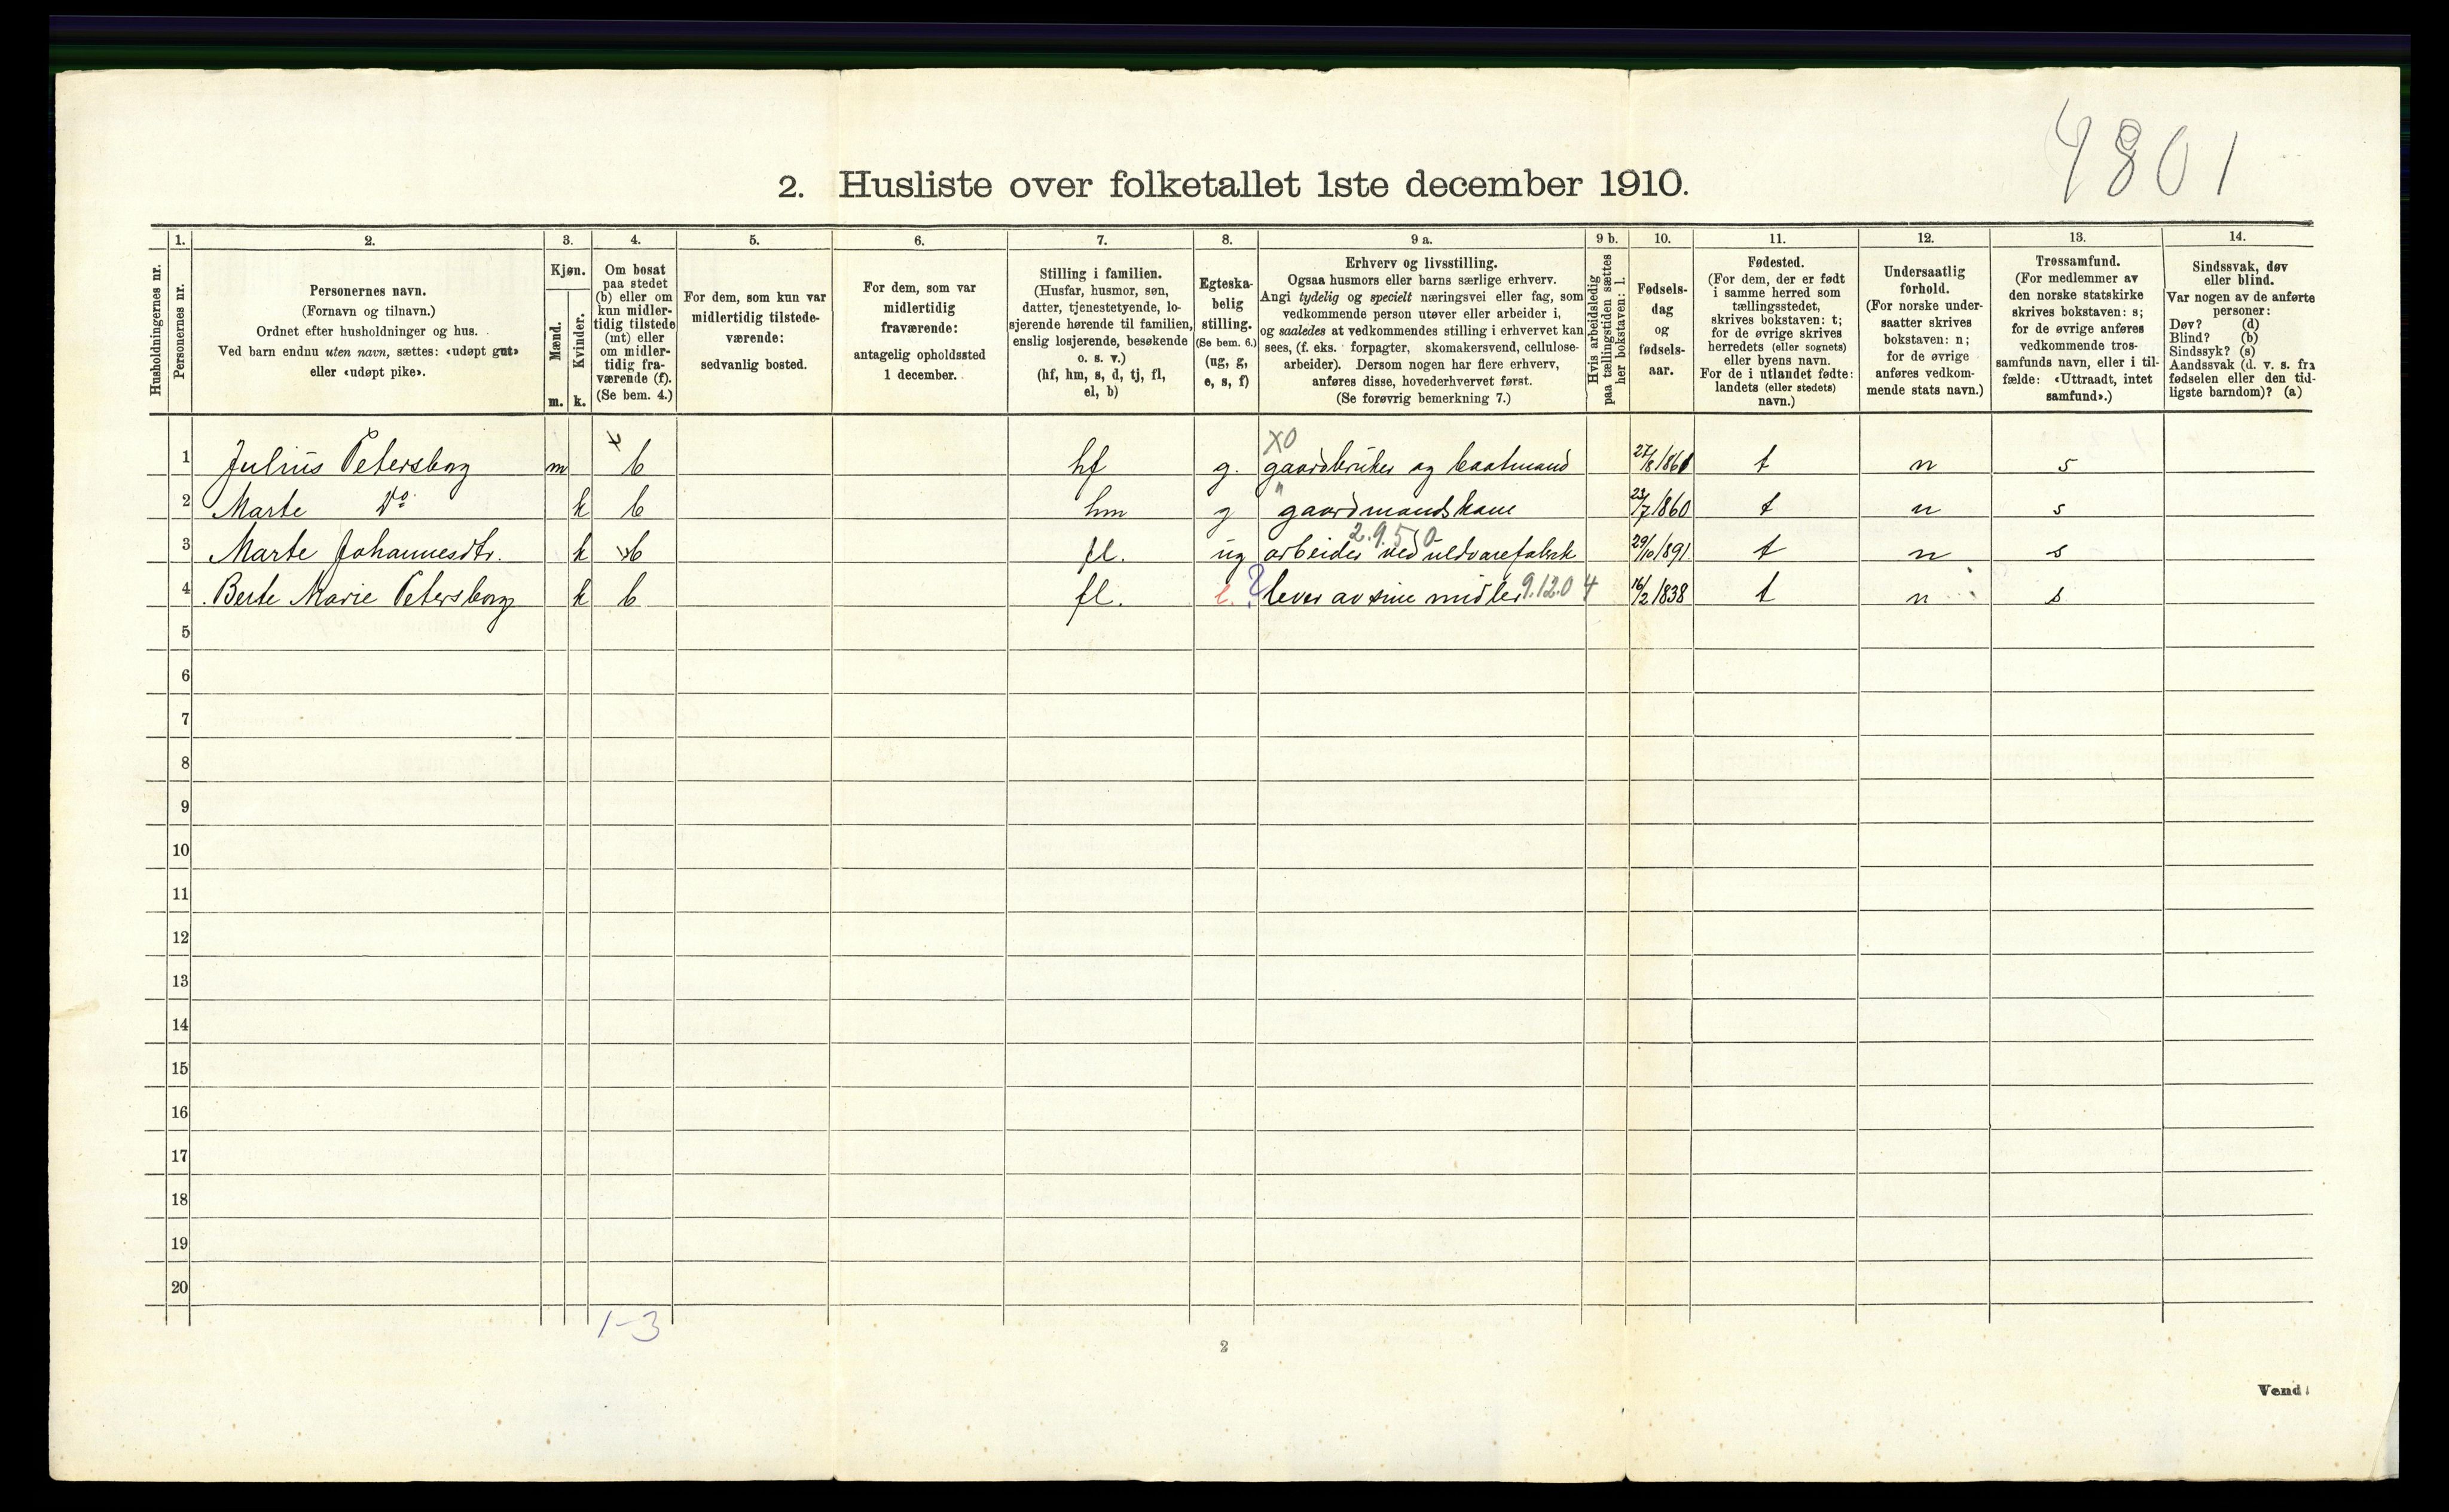 4801
2. Husliste over folketallet 1ste december 1910.
Husholdningernes nr.
1.
Personernes nr.
2.
Personernes navn.
(Fornavn og tilnavn.)
Ordnet efter husholdninger og hus.
Ved barn endnu uten navn, sættes: «udøpt gut»
eller «udøpt pike».
3.
Kjøn.
Mænd.
Kvinder.
m. k.
4.
Om bosat
paa stedet
(b) eller om
kun midler-
tidig tilstede
(mt) eller
om midler-
tidig fra-
værende (f).
(Se bem. 4.)
5.
For dem, som kun var
midlertidig tilstede-
værende:
sedvanlig bosted.
6.
For dem, som var
midlertidig
fraværende:
antagelig opholdssted
1 december.
7.
Stilling i familien.
(Husfar, husmor, søn,
datter, tjenestetyende, lo-
sjerende hørende til familien,
enslig losjerende, besøkende
o. s. v.)
(hf, hm, s, d, tj, fl,
el, b)
8.
Egteska-
belig
stilling.
(Se bem. 6.)
(ug, g,
e, s, f)
9 a.
Erhverv og livsstilling.
Ogsaa husmors eller barns særlige erhverv.
Angi tydelig og specielt næringsvei eller fag, som
vedkommende person utøver eller arbeider i,
og saaledes at vedkommendes stilling i erhvervet kan
sees, (f. eks. forpagter, skomakersvend, cellulose-
arbeider). Dersom nogen har flere erhverv,
anføres disse, hovederhvervet først.
(Se forøvrig bemerkning 7.)
9 b.
Hvis arbeidsledig
paa tællingstiden sættes
her bokstaven: l.
10.
Fødsels-
dag
og
fødsels-
aar.
11.
Fødested.
(For dem, der er født
i samme herred som
tællingsstedet,
skrives bokstaven: t;
for de øvrige skrives
herredets (eller sognets)
eller byens navn.
For de i utlandet fødte:
landets (eller stedets)
navn.)
12.
Undersaatlig
forhold.
(For norske under-
saatter skrives
bokstaven: n;
for de øvrige
anføres vedkom-
mende stats navn.)
13.
Trossamfund.
(For medlemmer av
den norske statskirke
skrives bokstaven: s;
for de øvrige anføres
vedkommende tros-
samfunds navn, eller i til-
fælde: «Uttraadt, intet
samfund».)
14.
Sindssvak, døv
eller blind.
Var nogen av de anførte
personer:
Døv? (d)
Blind? (b)
Sindssyk? (s)
Aandssvak (d. v. s. fra
fødselen eller den tid-
ligste barndom)? (a)
X0
1 Julius Petersborg m b hf g. gaardbruker og baatmand 27/8 1861 t n s
2 Marte Do k b hm g " gaardmandskone 23/7 1860 t n s
2.9.5 0
3 Marte Johannesdtr. k b fl. ug arbeider ved uldvarefabrik 29/10 1891 t n s
4 Berte Marie Petersborg k b fl. e. ? lever av sine midler 9.12.0 4 16/2 1838 t n s
5
6
7
8
9
10
11
12
13
14
15
16
17
18
19
20
1-3
2
Vend!